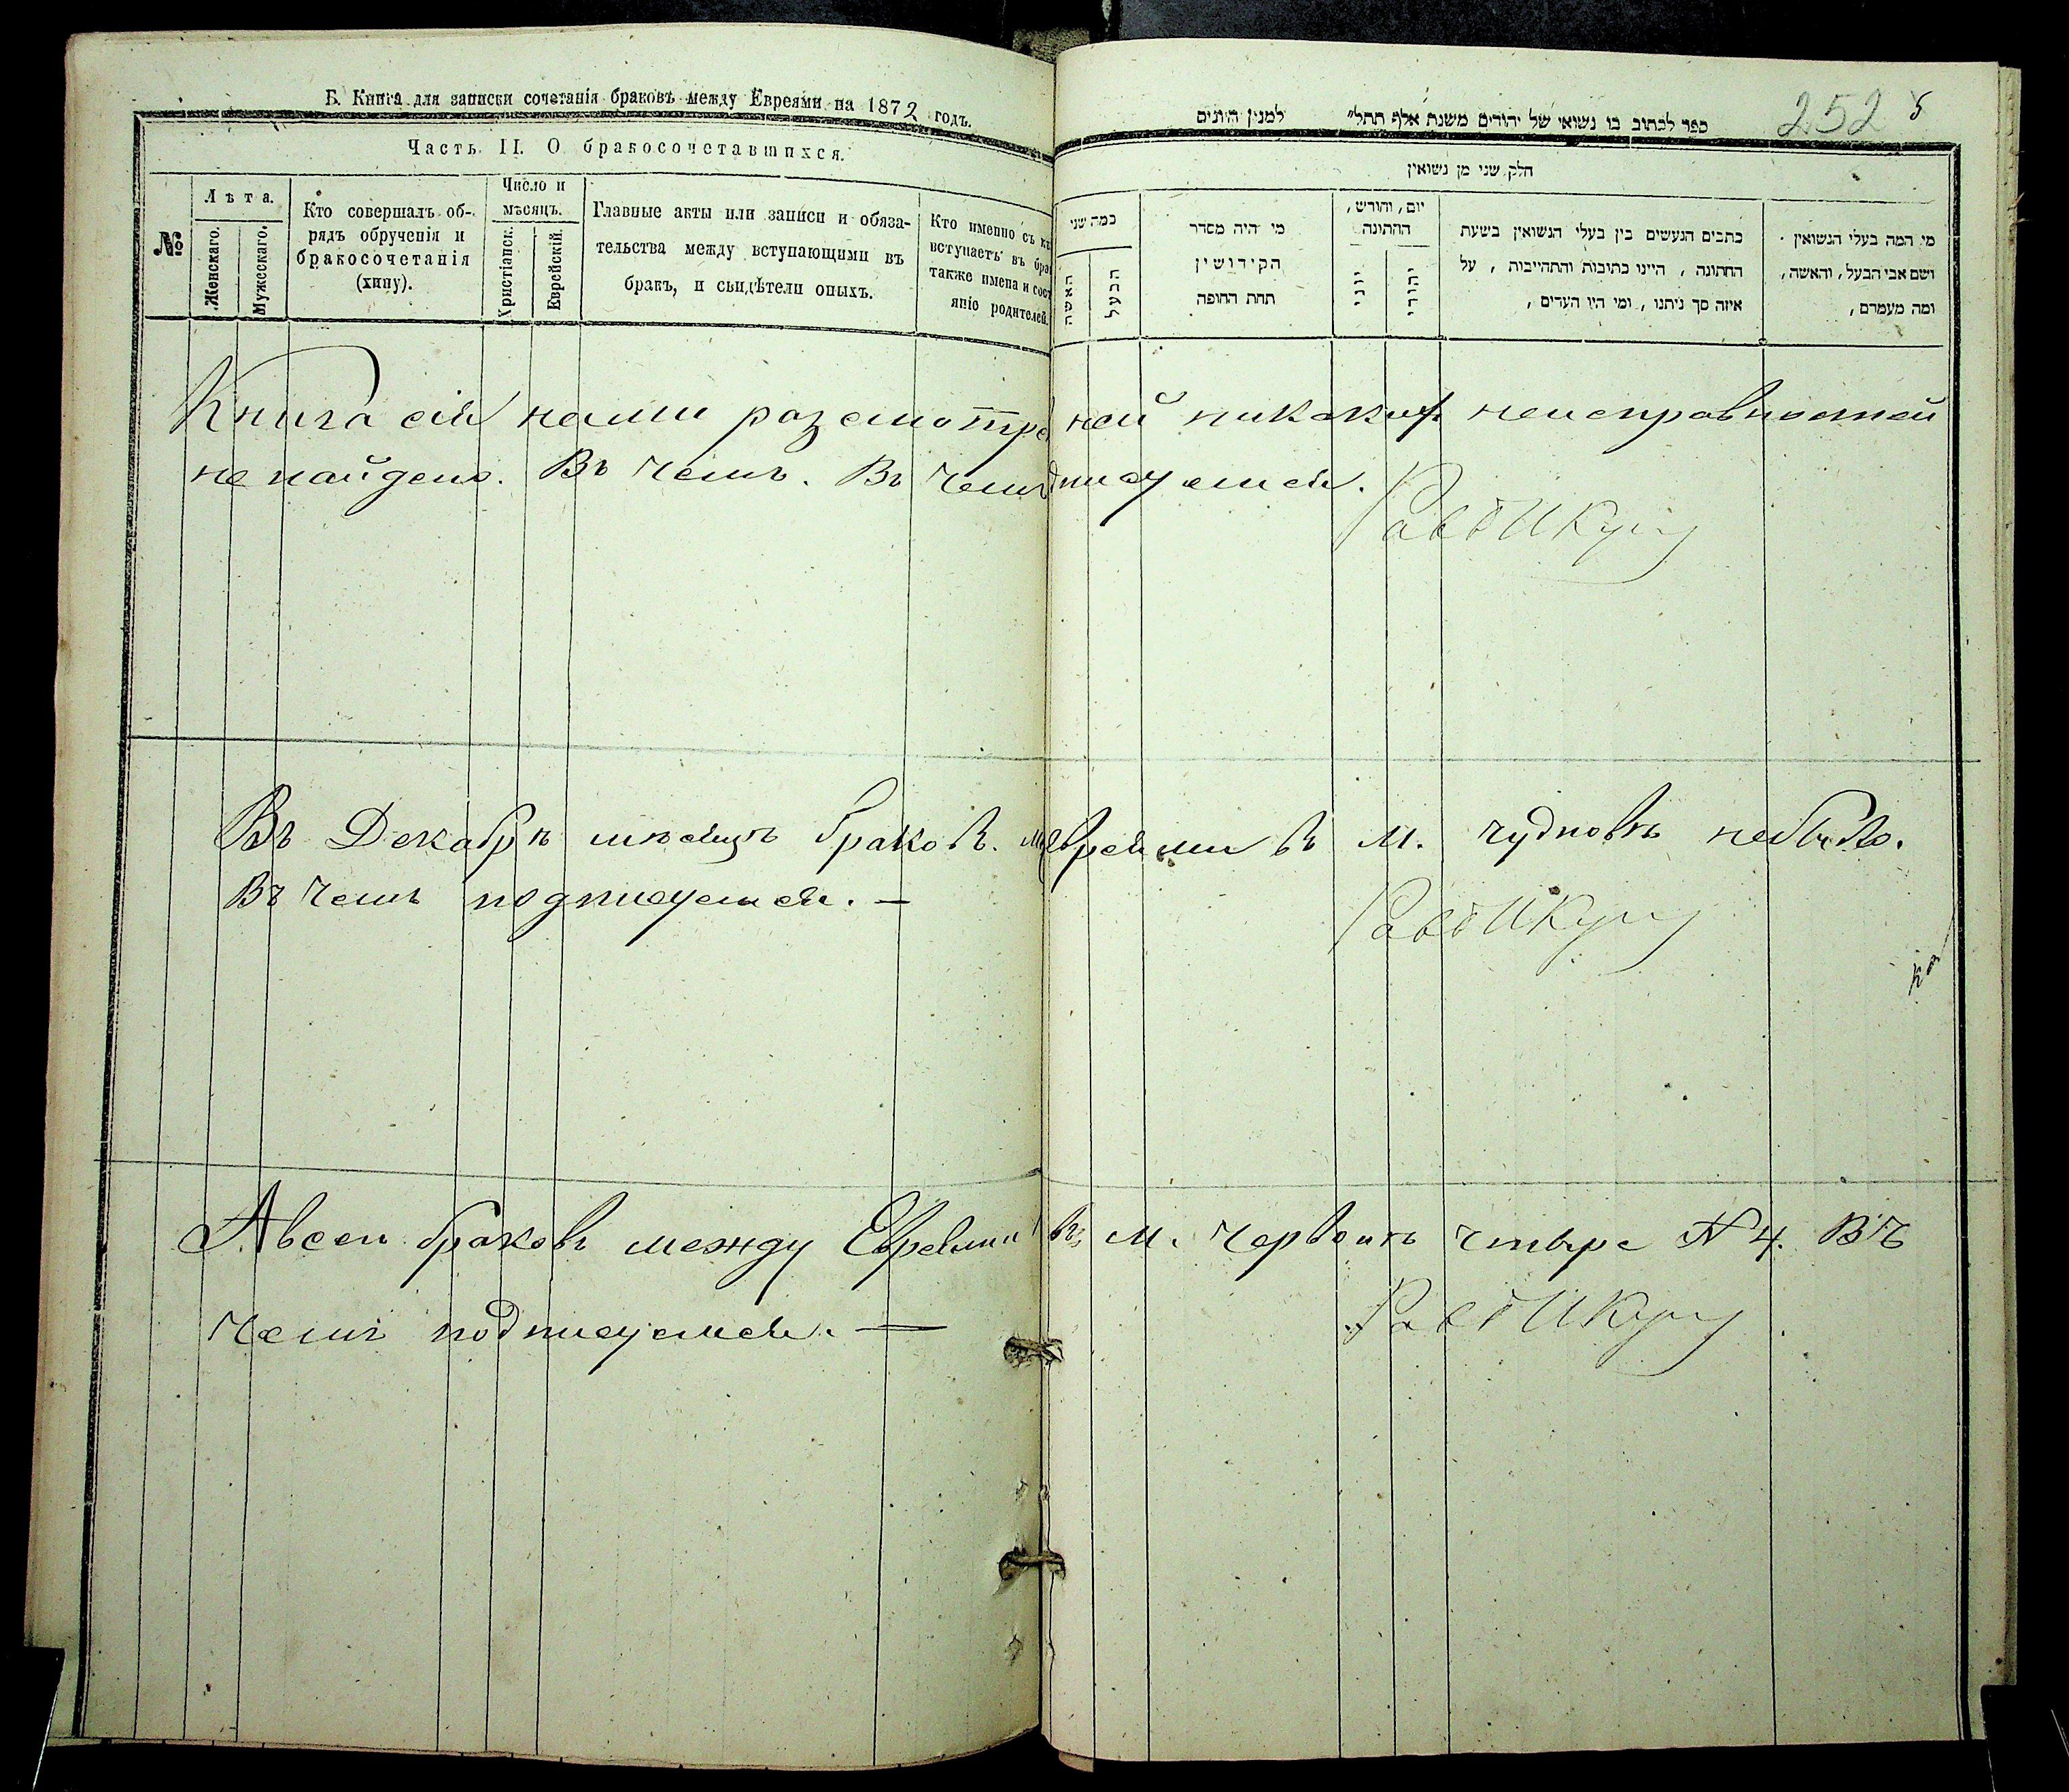 Б. Книга для записки сочетанія браковъ между Евреями на 1872 годъ.
Часть II. О бракосочетавшихся.
№
Лѣта.
Женскаго.
Мужескаго.
Кто совершалъ об-
рядъ обрученія и
бракосочетанія
(хипу).
Число и
мѣсяцъ.
Христіанск.
Еврейскій.
Главные акты или записи и обяза-
тельства между вступающими въ
бракъ, и свидѣтели оныхъ.
Кто именно съ
вступаетъ въ
также имена и
яніо родителей.
252
ספר לכתוב בו נשואי של יהודים משנת אלף תתל״ למנין היונים
חלק שני מן נשואין
כמה שני
האשה
הבעל
מי היה מסדר
הקידושין
תחת החופה
יום, וחורש,
החתונה
יוני
יהודי
כתבים הנעשים בין בעלי הנשואין בשעת
החתונה, היינו כתובות והתחייבות, על
איזה סך ניתנו, ומי היו העדים,
מי המה בעלי הנשואין
ושם אבי הבעל, והאשה,
ומה מעמדם,
Книга сія нами разсмотре ней никакихъ неисправностей
не найдено. Въ чемъ. Въ чемъ писуемся.
Въ Декабрѣ мѣсяцѣ браковъ. евреями въ М. чудновѣ небыло.
Въ чемъ подписуемся. —
Авсеи браковъ между Евреями въ М. Червонъ чтыре N 4. ВЪ
чемъ подписуемся. —